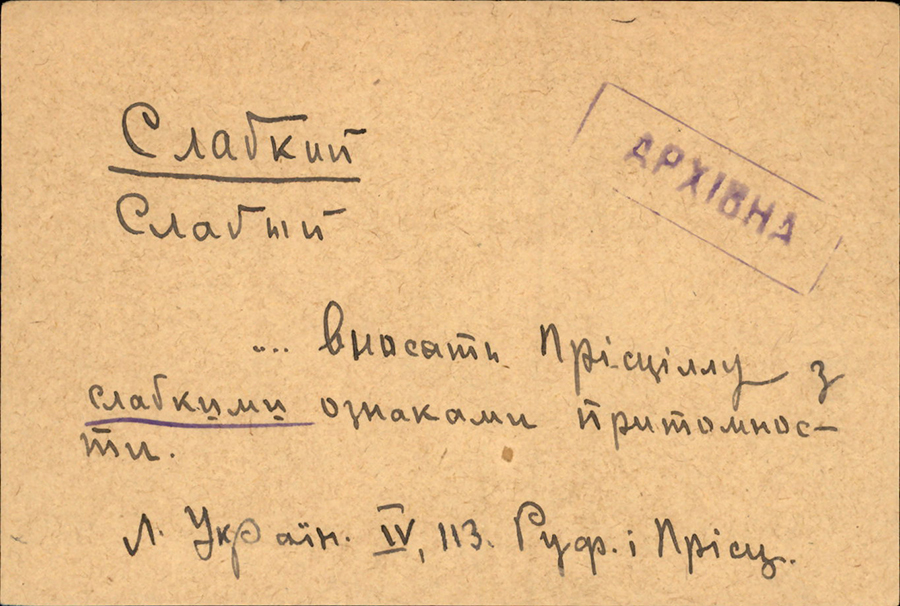 Слабкий
АРХІВНА
Слабший
... вносать Прісціллу з
слабкими ознаками притомнос-
ти.
Л. Україн. IV, 113. Руф. і Прісц.